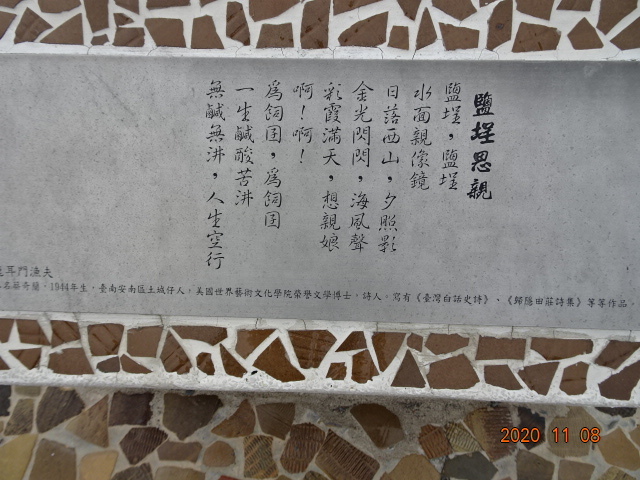 鹽埕思親
鹽埕，鹽埕
水面親像鏡
日落西山，夕照影
金光閃閃，海風聲
彩霞滿天，想親娘
啊！啊！
為飼囝，為飼囝
一生鹹酸苦汫
無鹹無汫，人生空行
耳門漁夫
名蔡奇蘭，1944年生，臺南安南區土城仔人，美國世界藝術文化學院榮譽文學博士，詩人，寫有《臺灣白話史詩》，《歸隱田莊詩集》等等作品。
2020 11 08